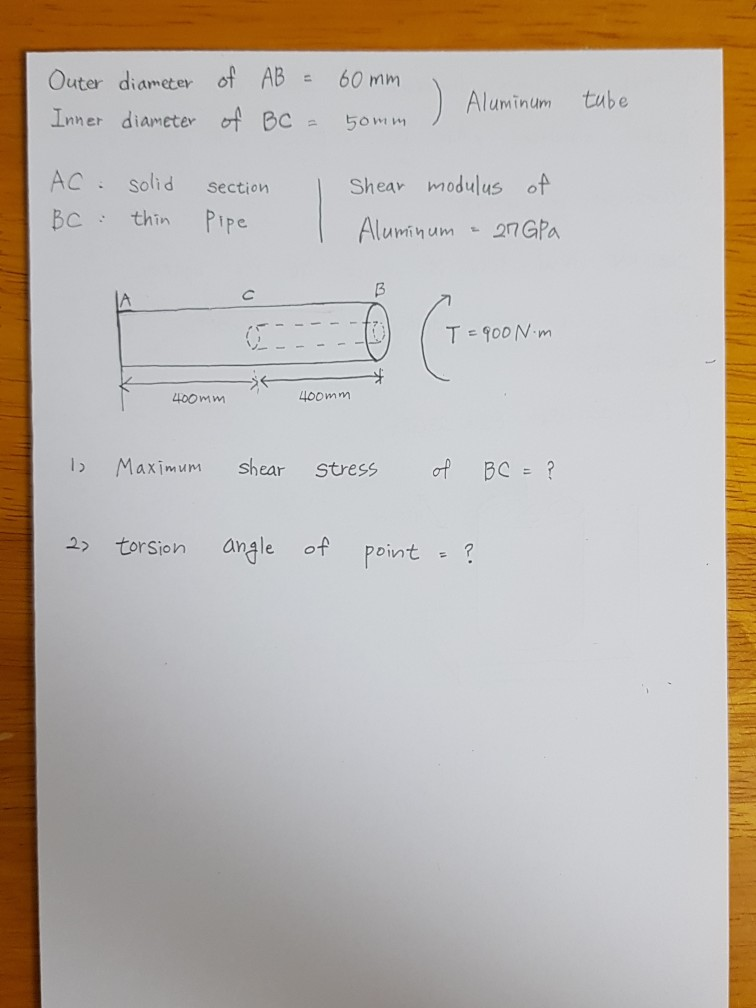 Outer diameter of AB = 60mm
Inner diameter of BC = 50mm
) Aluminum tube
AC : solid section
BC : thin Pipe
Shear modulus of
Aluminum = 27GPa
A C B
T = 900 N·m
400mm 400mm
1) Maximum shear stress of BC = ?
2) torsion angle of point = ?